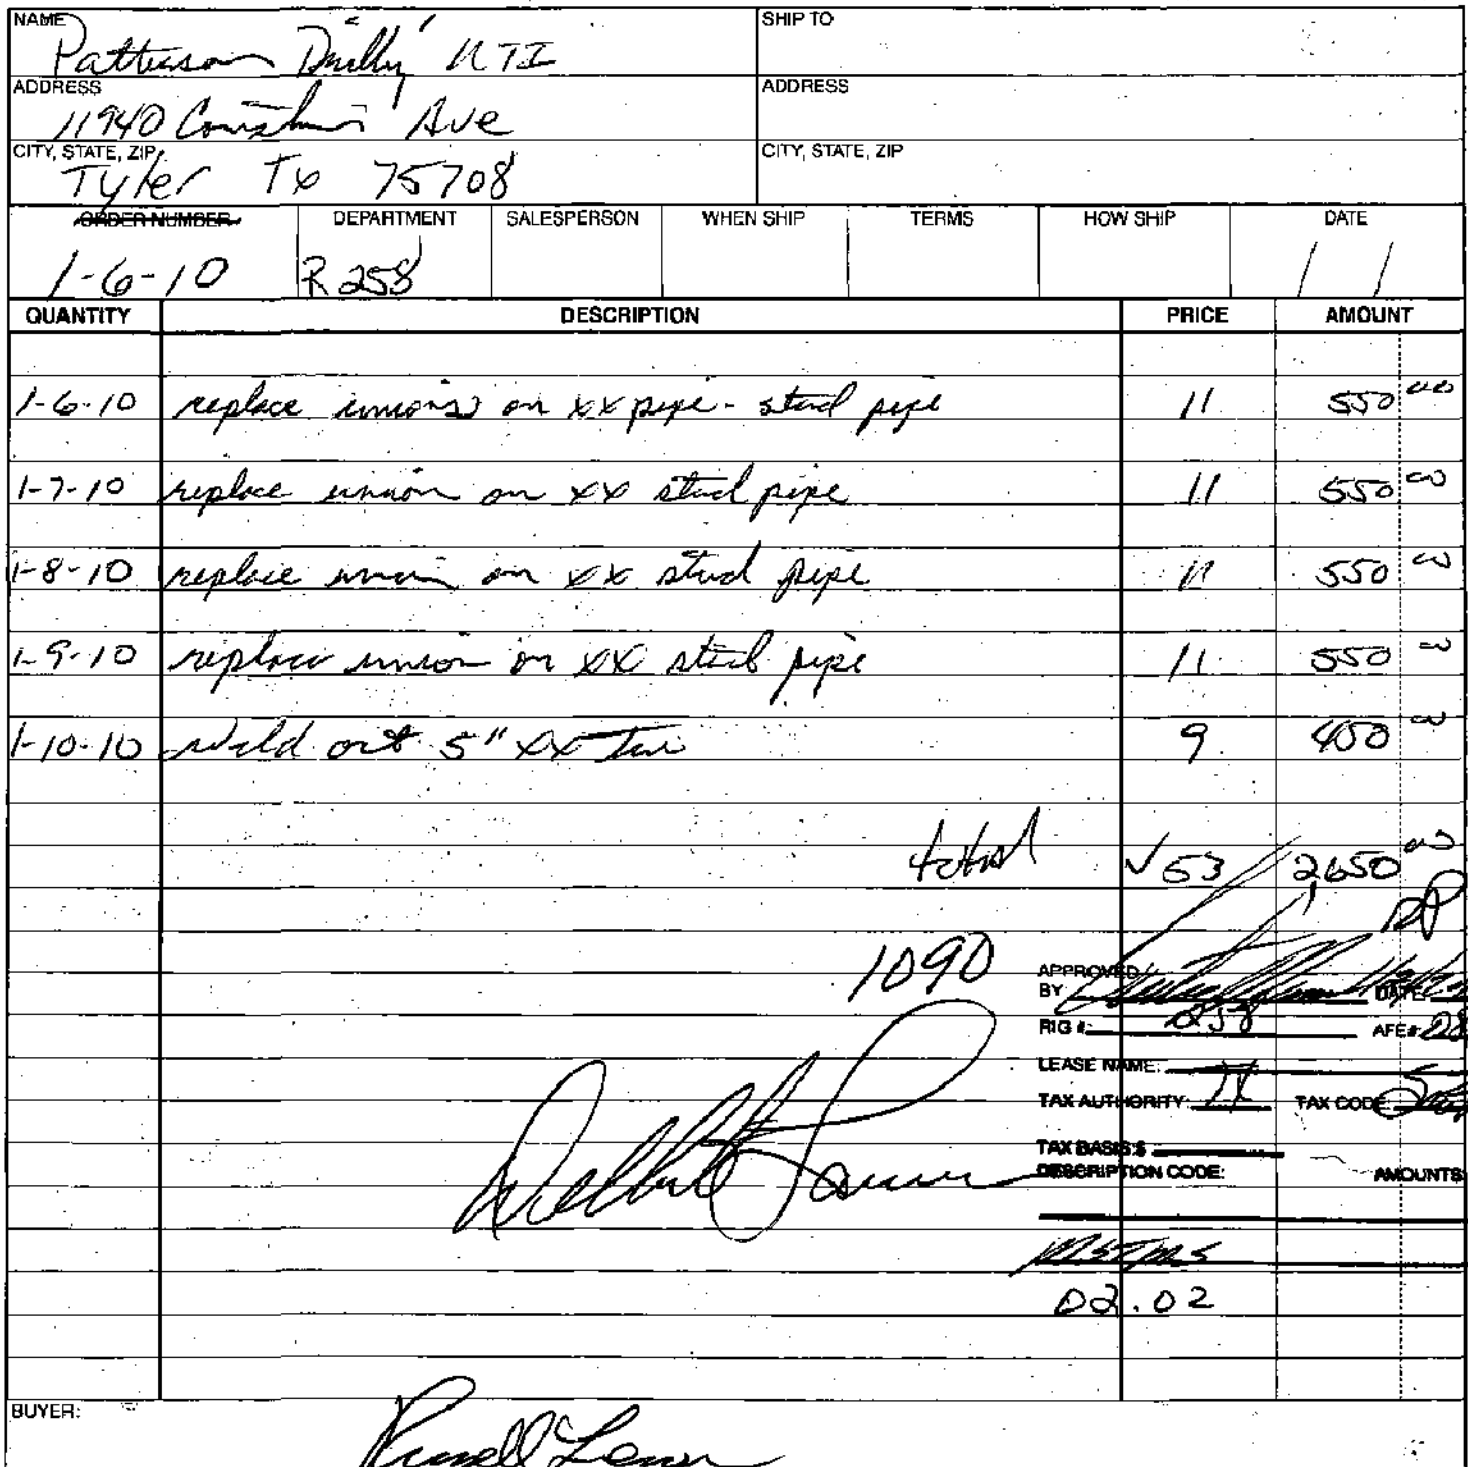 NAME SHIP TO
Patterson UTI
ADDRESS ADDRESS
11940 Ave
CITY, STATE, ZIP CITY, STATE, ZIP
Tyler Tx 75708
ORDER NUMBER DEPARTMENT SALESPERSON WHEN SHIP TERMS HOW SHIP DATE
1-6-10 R 258 / /
QUANTITY DESCRIPTION PRICE AMOUNT
1-6-10 replace unions on xx pipe - stud pipe 11 550 00
1-7-10 replace union on xx stud pipe 11 550 00
1-8-10 replace union on xx stud pipe 11 550 00
1-9-10 replace union on xx stud pipe 11 550 00
1-10-10 weld out 5" xx 9 450 00
total ✓ 53 2650 00
1090
APPROVED
BY DATE
RIG #: 258 AFE#
LEASE NAME:
TAX AUTHORITY: TX TAX CODE:
TAX BASIS $
DESCRIPTION CODE: AMOUNTS
02.02
BUYER:
Russell